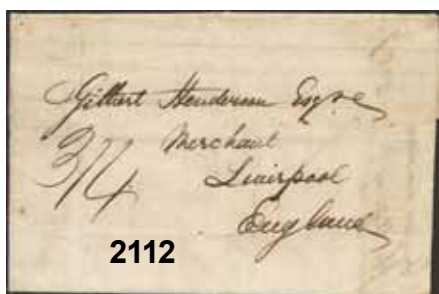 Gilbert Henderson Esqre
Merchant
3/4
Liverpool
England
2112